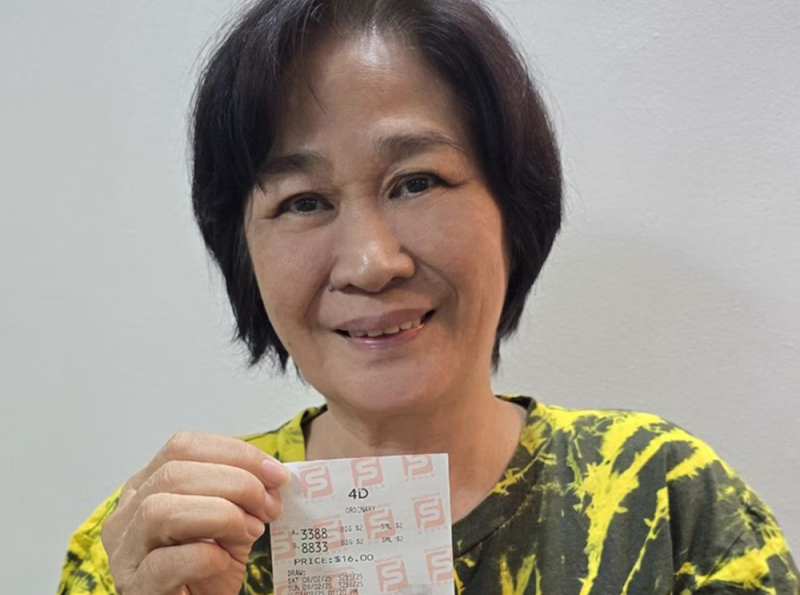 4D
ORDINARY
A.3388 BIG $2 SML $2
B.8833 BIG $2 SML $2
PRICE:$16.00
DRAW:
SAT 08/02/25
SUN 09/02/25